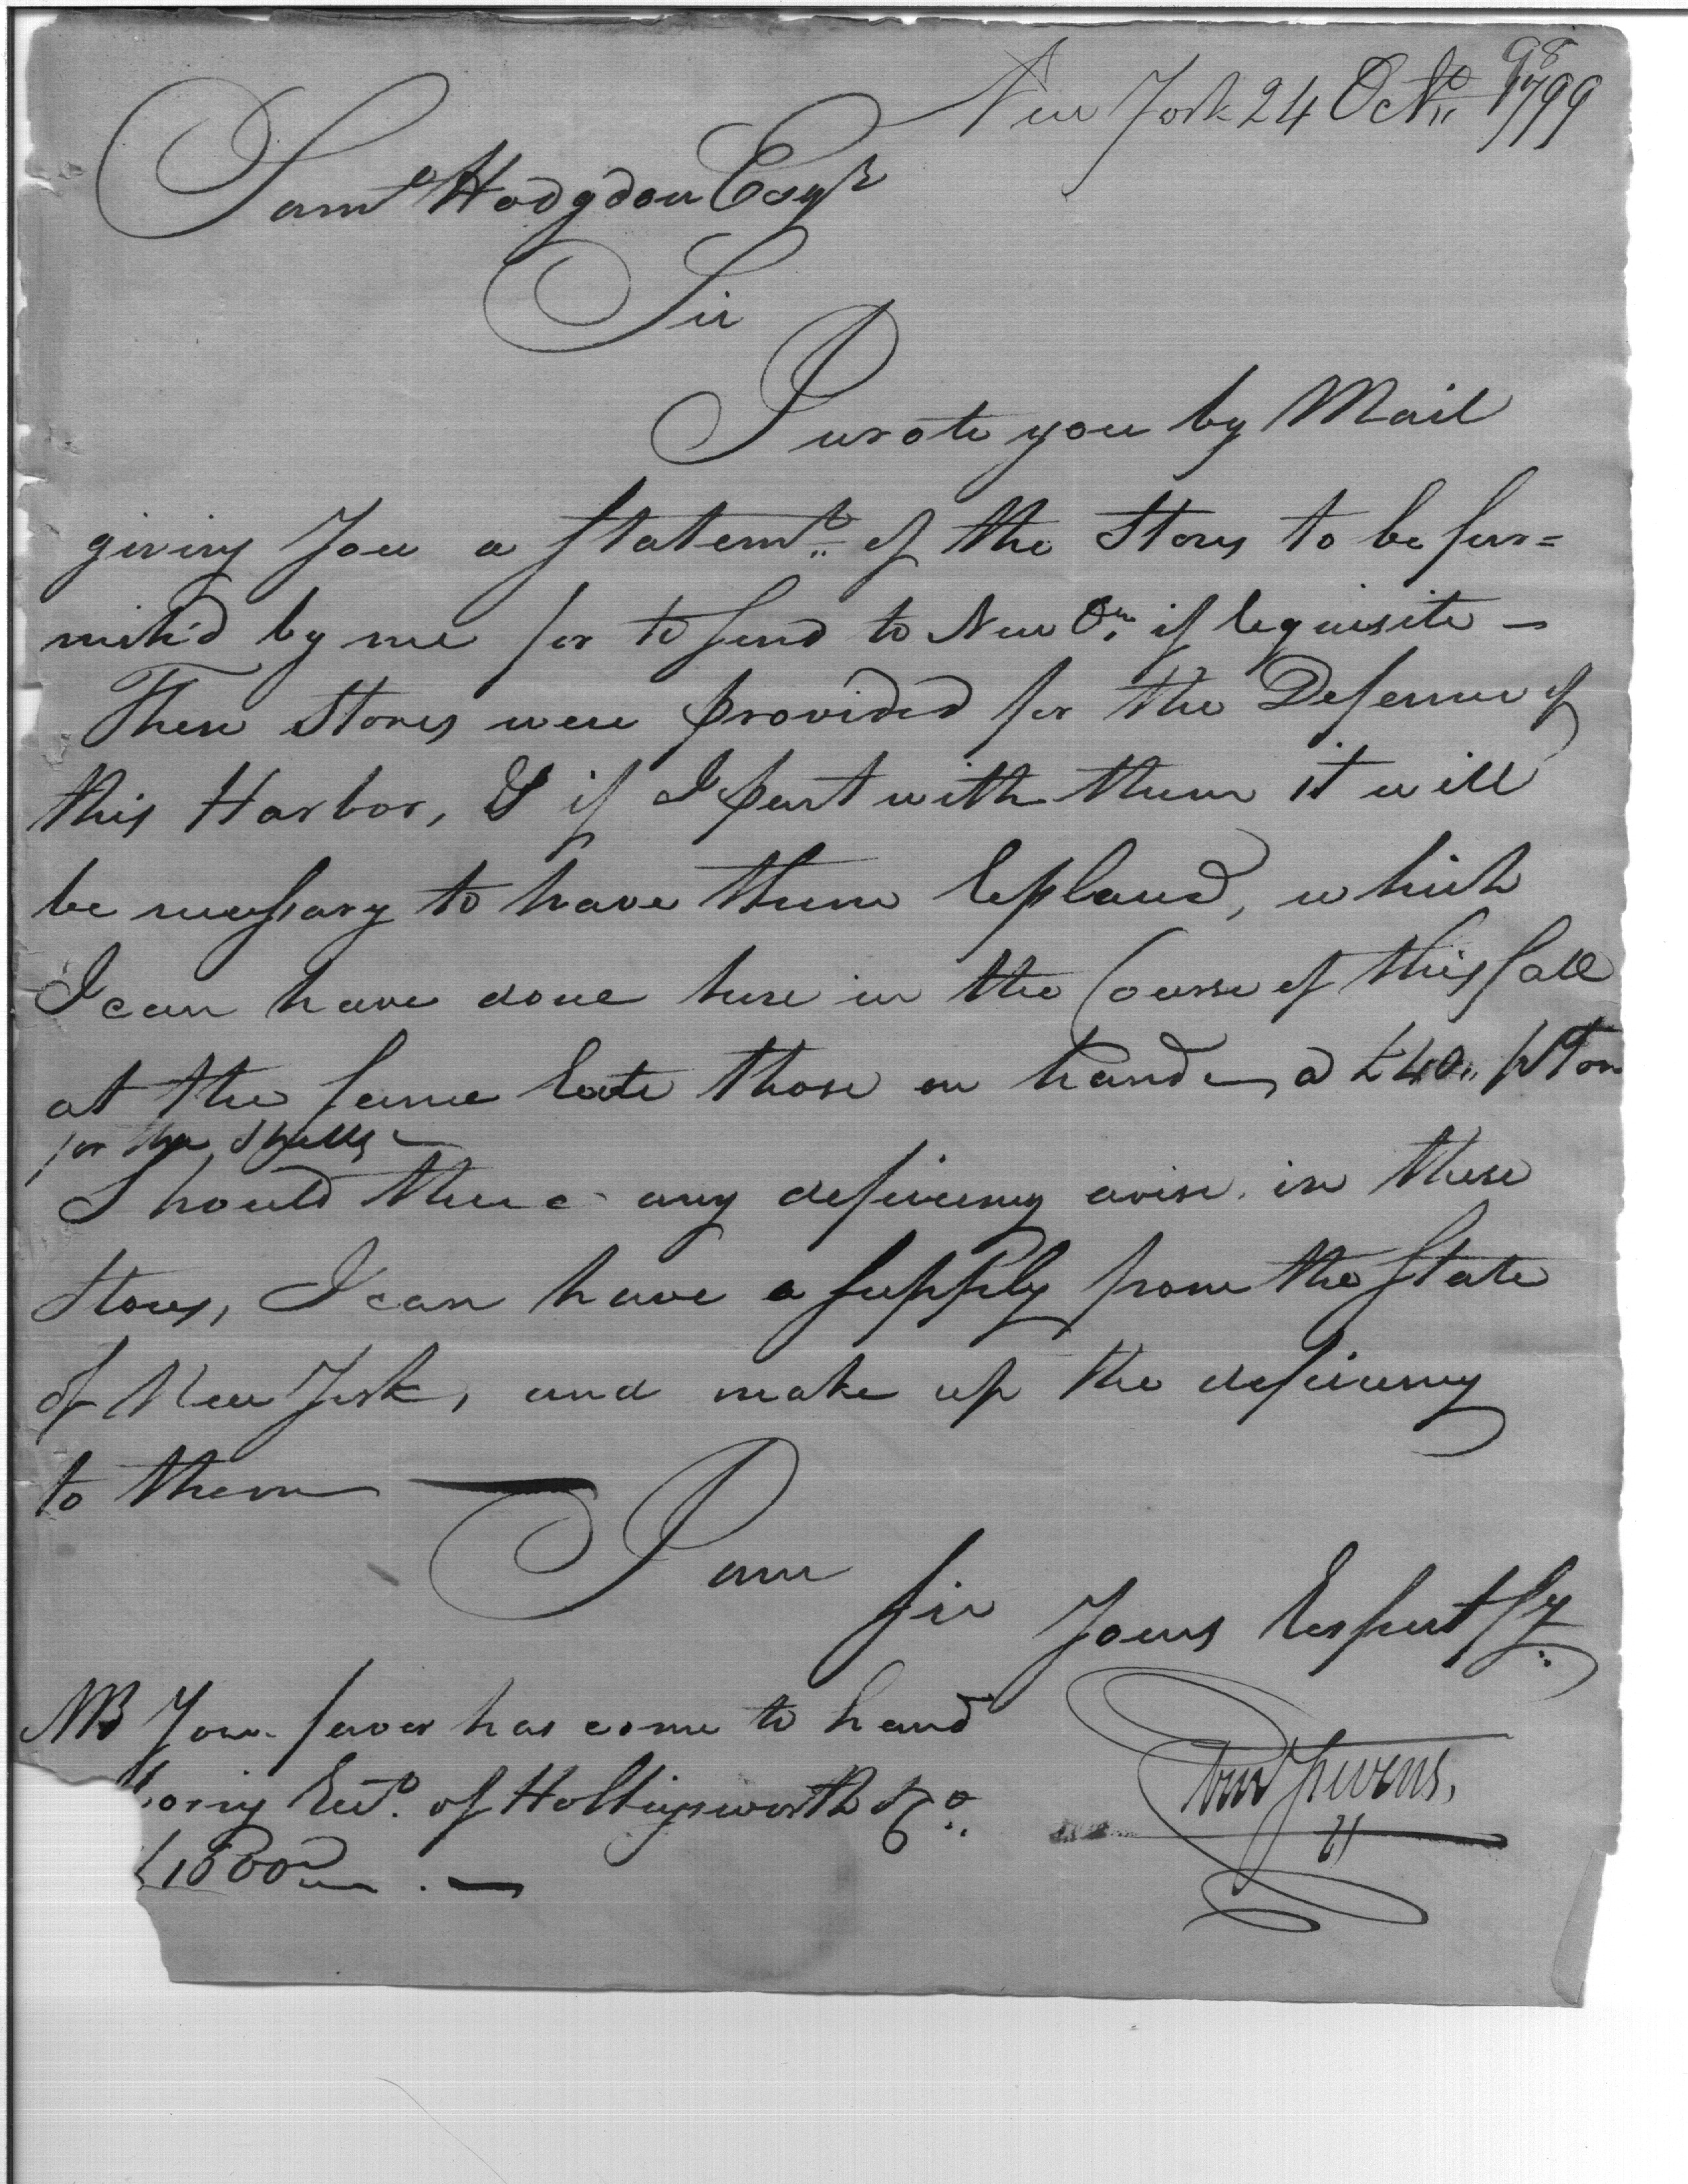 New York 24 Octo. 1799
98
Saml Hodgdon Esqr
Sir
I wrote you by Mail
giving You a Statemt. of the Stores to be fur=
nish'd by me for to send to New Orn. if requisite —
These Stores were provided for the Defence of
this Harbor, & if I part with them it will
be necessary to have them replaced, which
I can have done here in the Course of this fall
at the same rate those on hand — a £40.. p Ton
for the Shells —
Should there any deficiency arise in these
Stores, I can have a supply from the State
of New York, and make up the deficiency
to them —
I am
Sir Yours Respectfly.
NB Your favor has come to hand
Rect. of Hollingsworth & Co.
1800 . —
Ebenr Stevens.